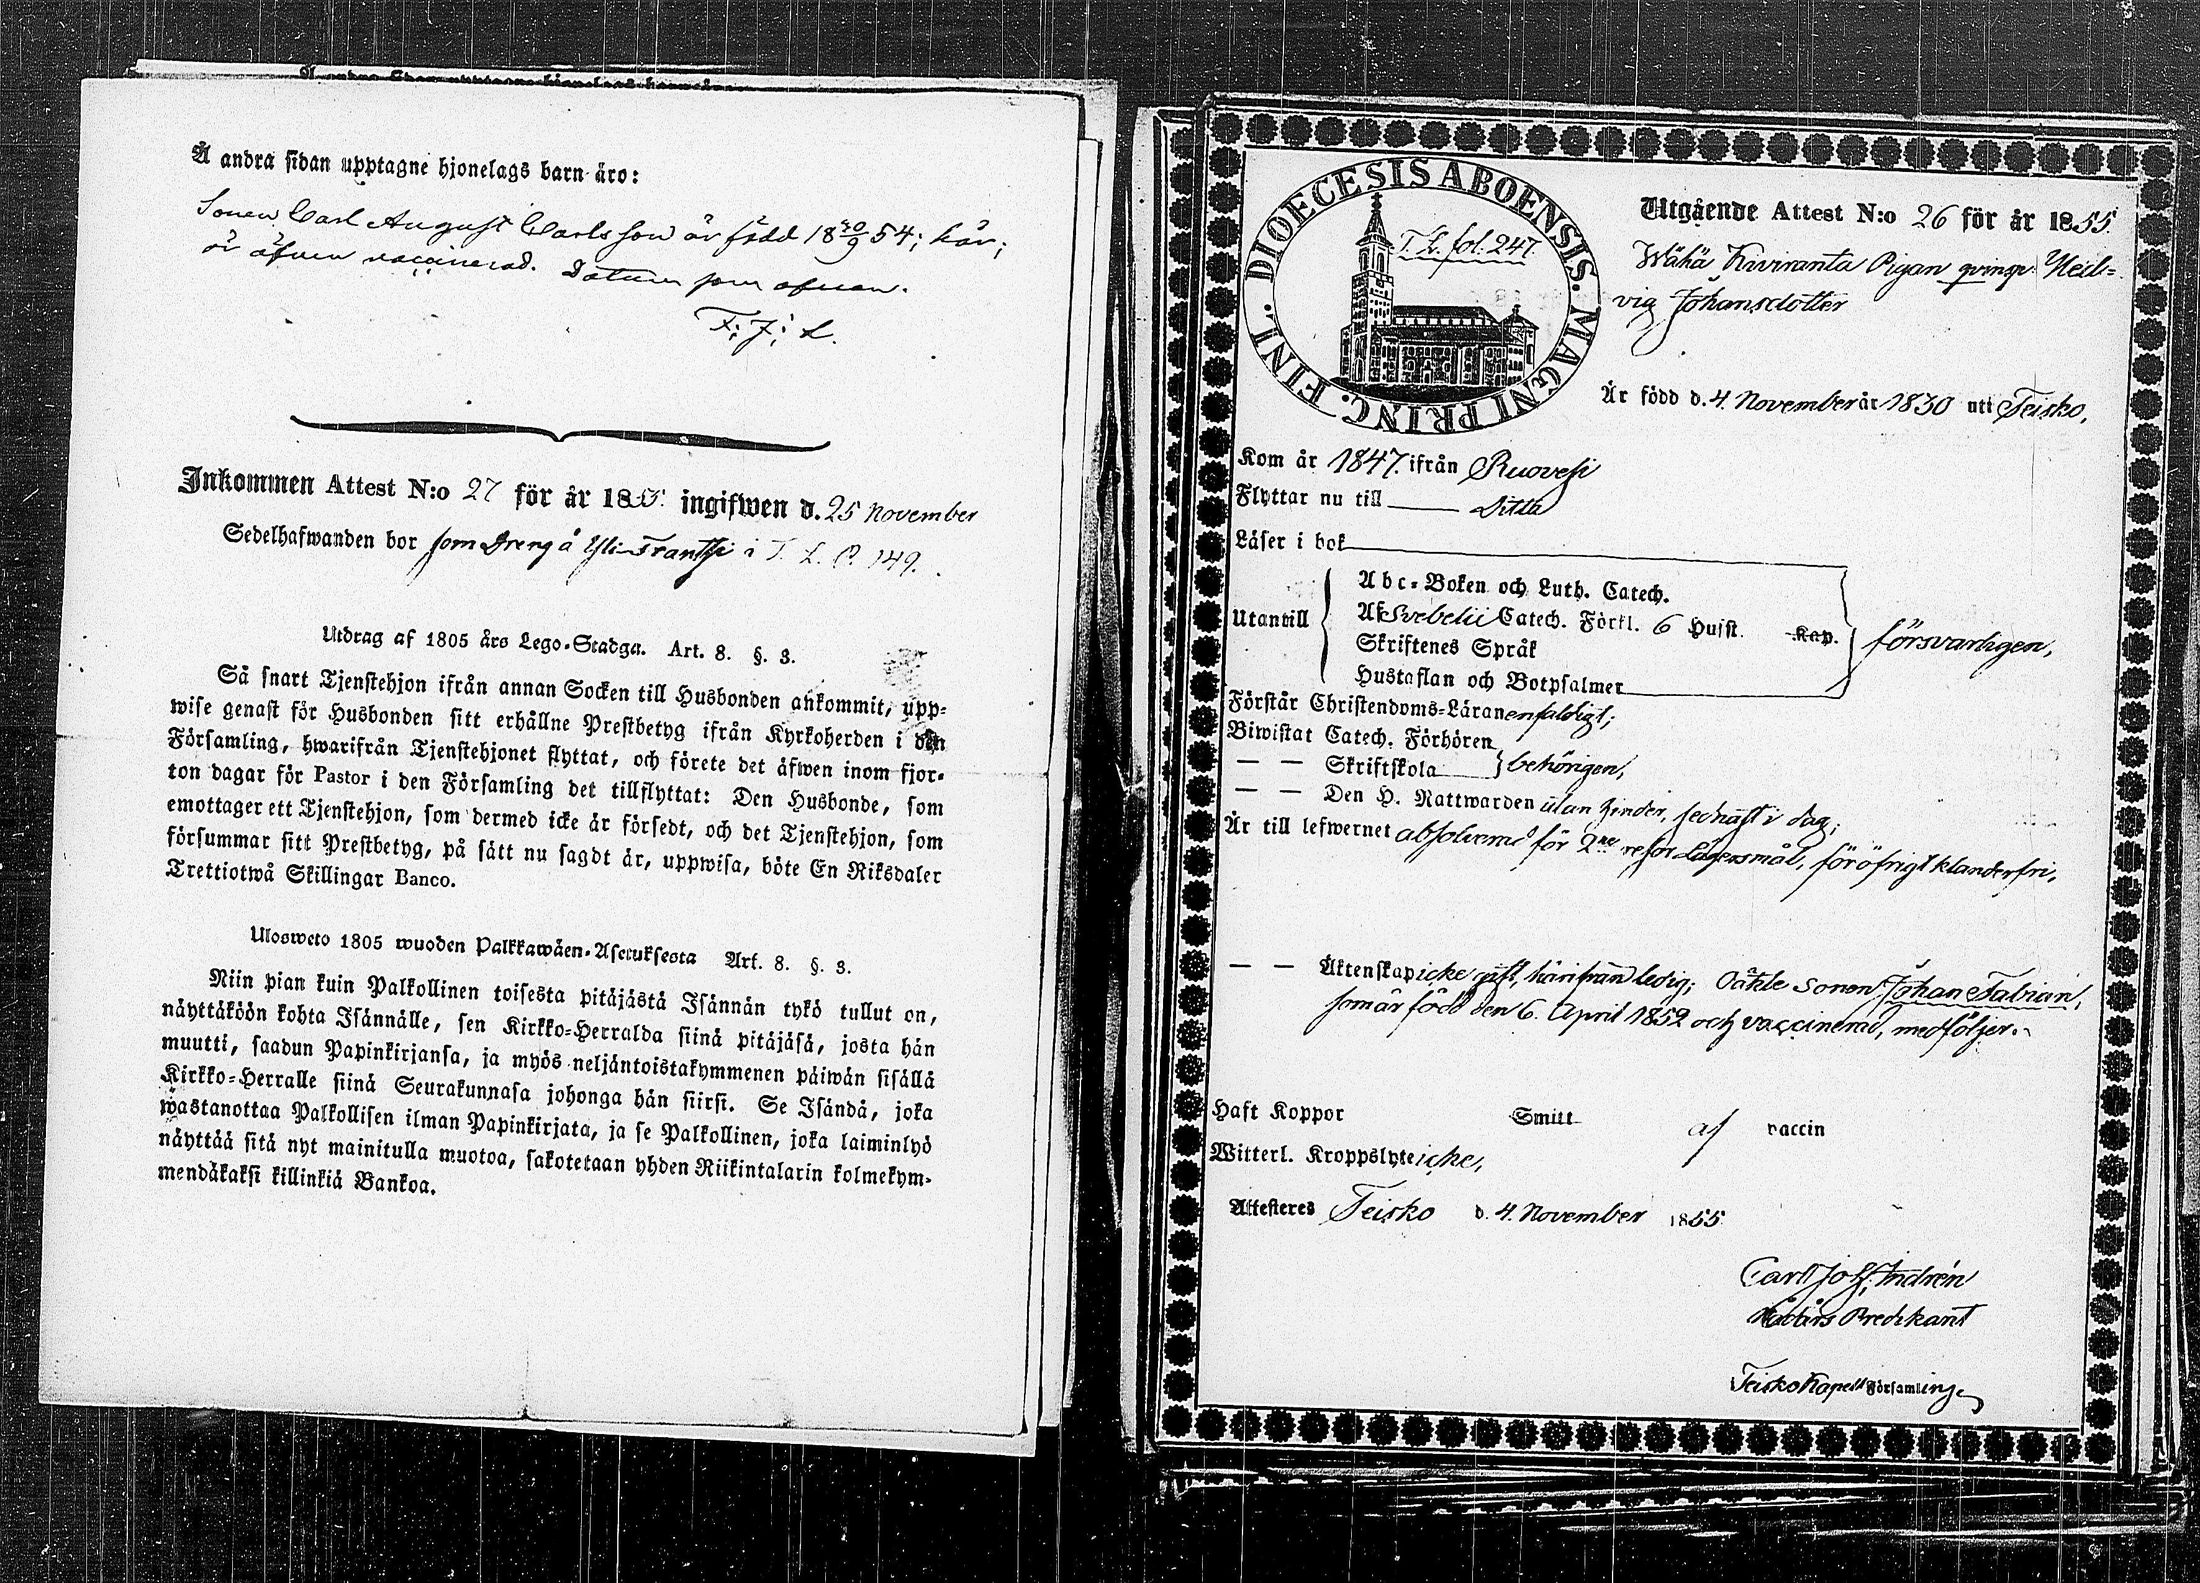 Å andra sidan upptagne hjonelags barn äro:
Sonen Carl August Carlsson är född 18 20/9 54; här;
är äfven vaccinerad. Datum som ofvan.
F. J. L.
Inkommen Attest N:o 27 för år 185 ingifwen d. 25 November
Sedelhafwanden bor som Dreng å Yli-Frantsi i T. L. P. 149.
Utdrag af 1805 års Lego-Stadga. Art. 8. §. 3.
Så snart Tjenstehjon ifrån annan Socken till Husbonden ankommit, upp-
wise genast för Husbonden sitt erhållne Prestbetyg ifrån Kyrkoherden i den
Församling, hwarifrån Tjenstehjonet flyttat, och förete det äfwen inom fjor-
ton dagar för Pastor i den Församling det tillflyttat: Den Husbonde, som
emottager ett Tjenstehjon, som dermed icke är försedt, och det Tjenstehjon, som
försummar sitt Prestbetyg, på sätt nu sagdt är, uppwisa, böte En Riksdaler
Trettiotwå Skillingar Banco.
Ulosweto 1805 wuoden Palkkawäen-Asetuksesta Art. 8. §. 3.
Niin pian kuin Palkollinen toisesta pitäjästä Isännän tykö tullut on,
näyttäköön kohta Isännälle, sen Kirkko-Herralda siinä pitäjäsä, josta hän
muutti, saadun Papinkirjansa, ja myös neljäntoistakymmenen päiwän sisällä
Kirkko-Herralle siinä Seurakunnasa johonga hän siirsi. Se Isändä, joka
wastanottaa Palkollisen ilman Papinkirjata, ja se Palkollinen, joka laiminlyö
näyttää sitä nyt mainitulla muotoa, sakotetaan yhden Riikintalarin kolmekym-
mendäkaksi killinkiä Bankoa.
DIOECESIS ABOENSIS. MAGNI PRINC. FINL.
T. L. fol. 247.
Utgående Attest N:o 26 för år 1855
Wähä Kiviranta Pigan qvinsp. Hed-
vig Johansdotter
Är född d. 4. November år 1830 uti Teisko,
Kom år 1847. ifrån Ruovesi
Flyttar nu till Ditto
Läser i bok
Utantill
Abc-Boken och Luth. Catech.
Af Svebelii Catech. Förkl. 6 Husst. Kap.
Skriftenes Språk
Hustaflan och Botpsalmer
försvarligen,
Förstår Christendoms-Läran enfaldigt;
Biwistat Catech. Förhören
— — Skriftskola behörigen,
— — Den H. Nattwarden utan hinder, sednast i dag;
Är till lefwernet absolverad för 2ne resor Lägersmål, för öfrigt klanderfri,
— — Äktenskap icke gift, härifrån ledig; Oäkte sonen Johan Fabian,
som är född den 6. April 1852 och vaccinerad, medföljer.
Haft Koppor Smitt af vaccin
Witterl. Kroppslyte icke,
Attesteres Teisko d. 4. November 1855
Carl Jos. Indrén
Nådårs Predikant
Teisko Kapell Församling